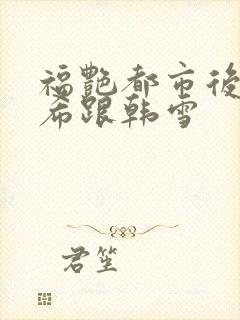 福艷都市後
希跟韩雪
君笙